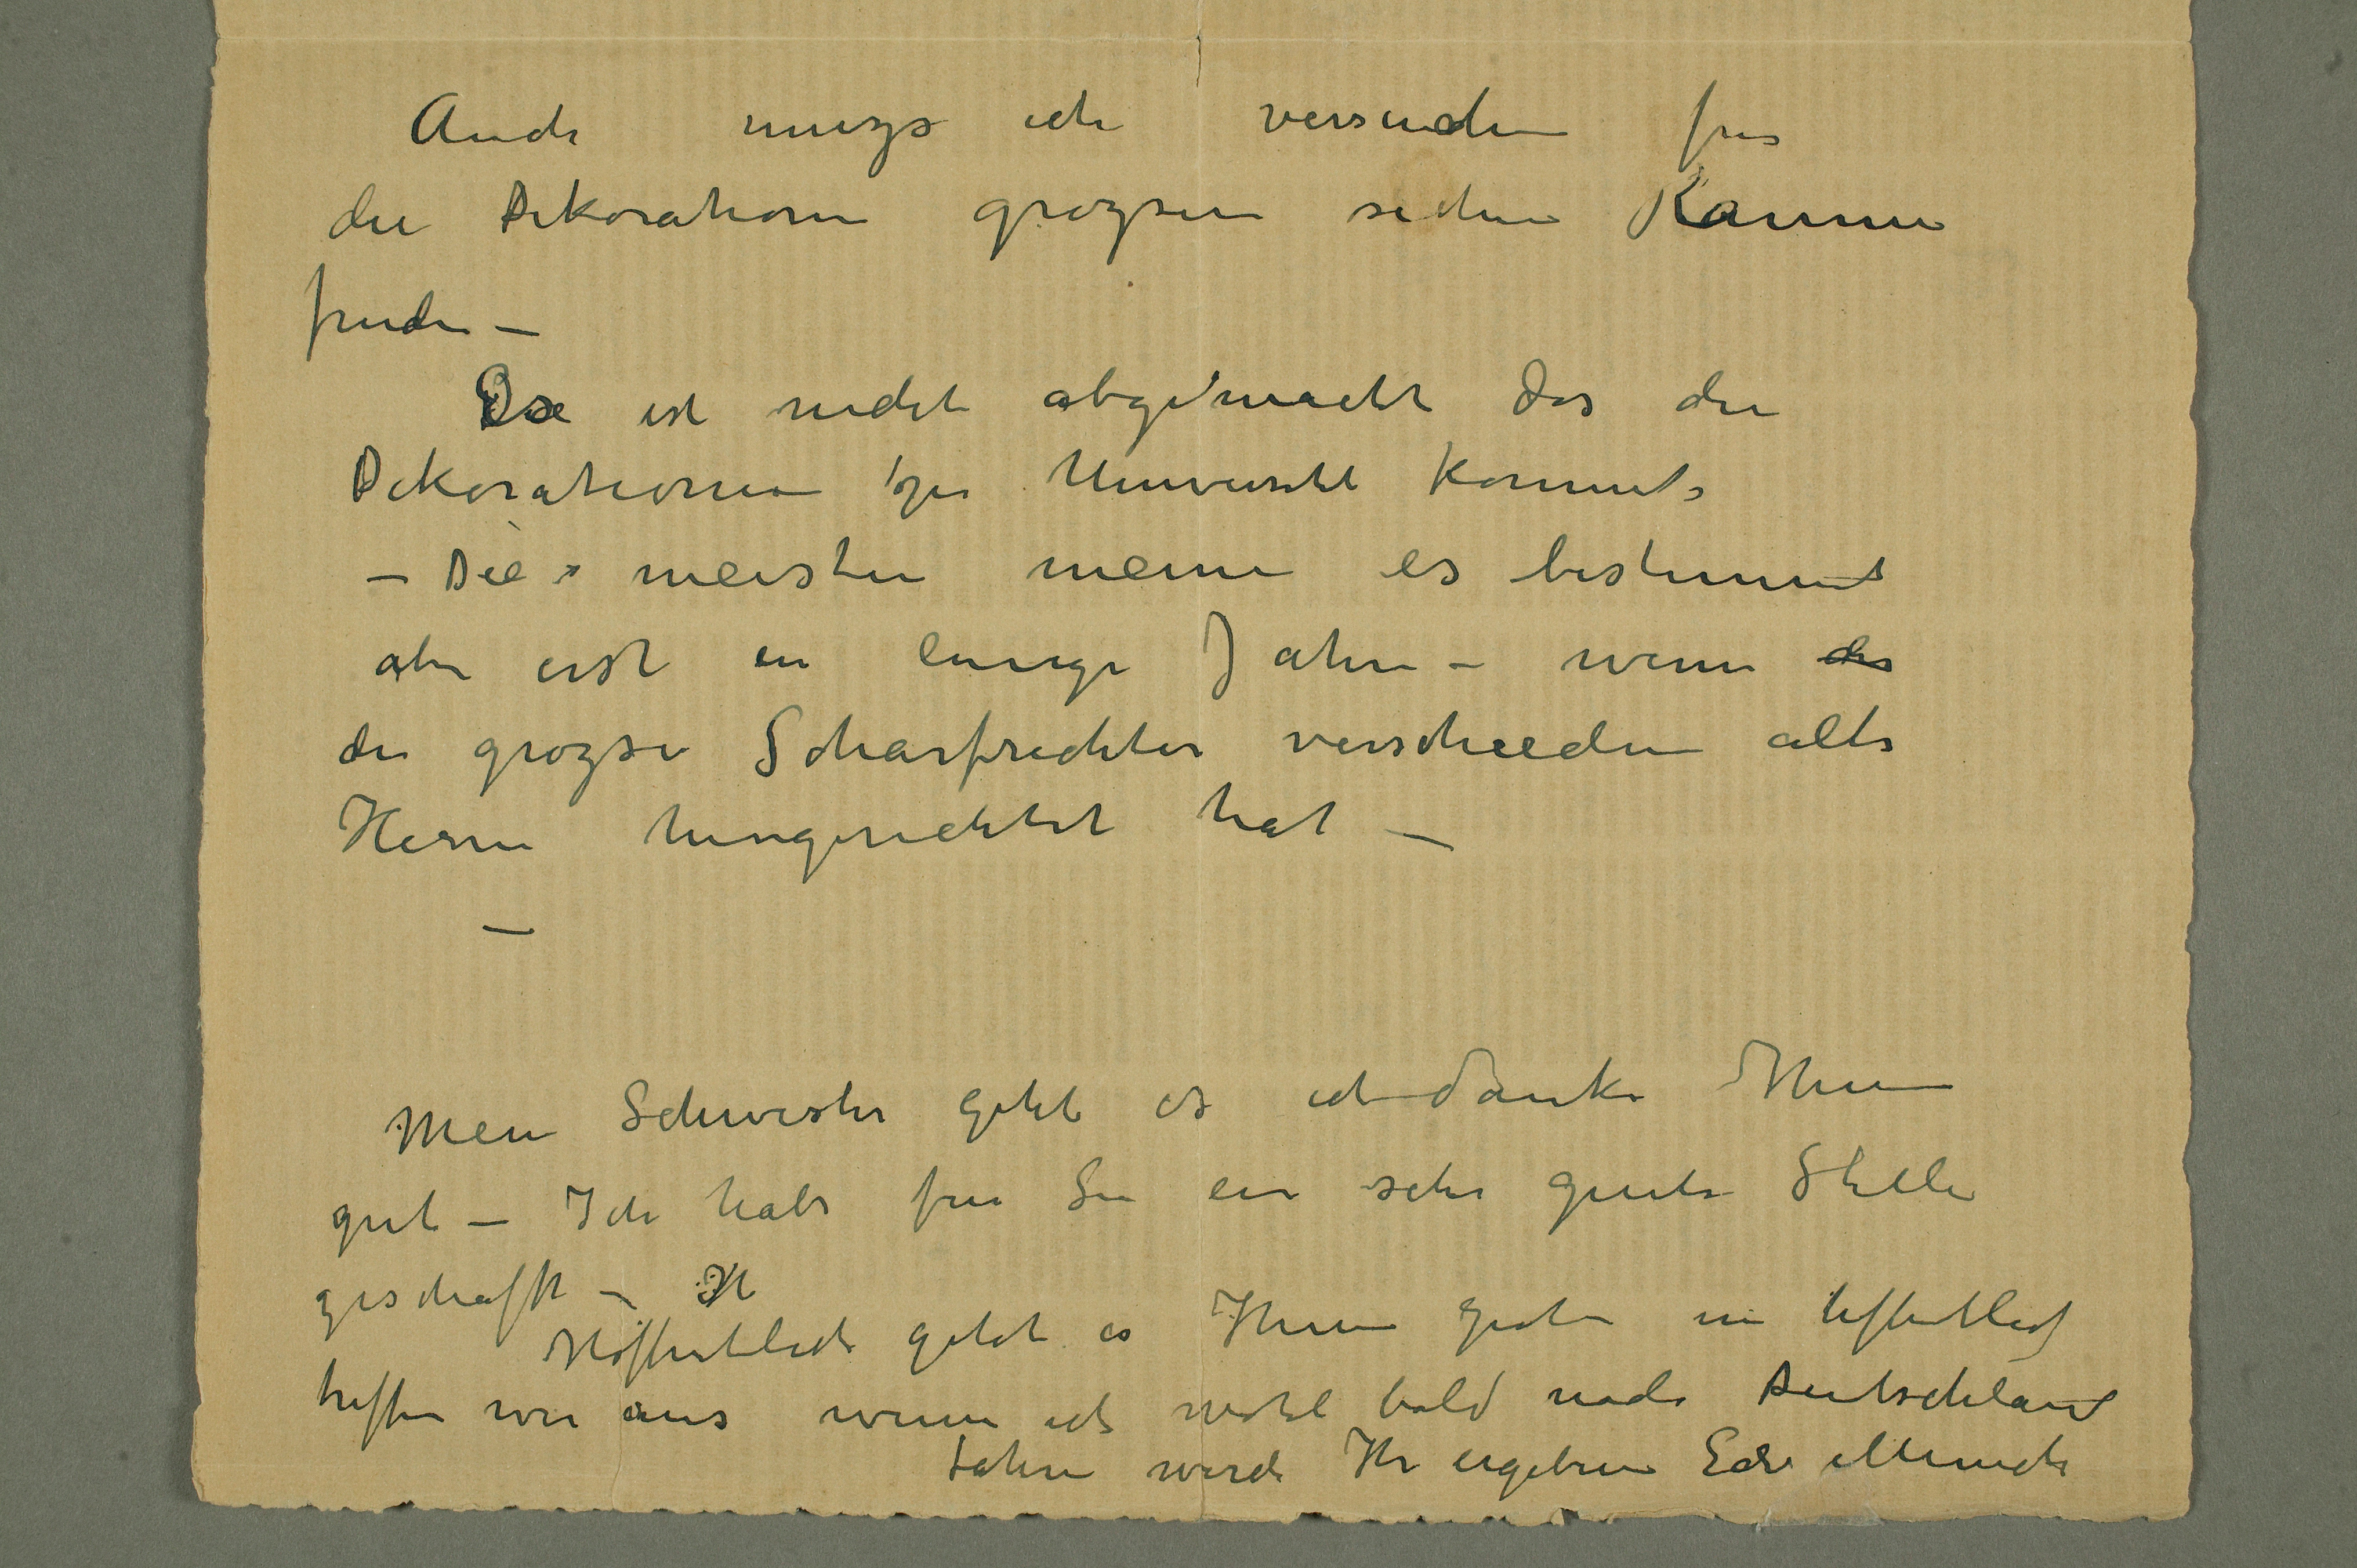 Auch muzs ich versuchen für
die Dekorationen grozsen sichen Raume
finden –
Es ist nicht abgemacht das die
Dekorationen zu Universitet kommt
– Die meisten meinen es bestimmt
aber erst in einige Jahre – wenn der
der grozse Scharfrichter verschieden alte
Herrn hingerichtet hat –
–
Mein Schwester geht es ich danke Ihnen
gut – Ich habe für Sie ein sehr gute Stelle
geschafft – H
Hoffentlich geht es Ihnen gut
treffen wir uns wenn ich wohl bald nach Deutschland
fahren werde Ihr ergebener Edv Munch